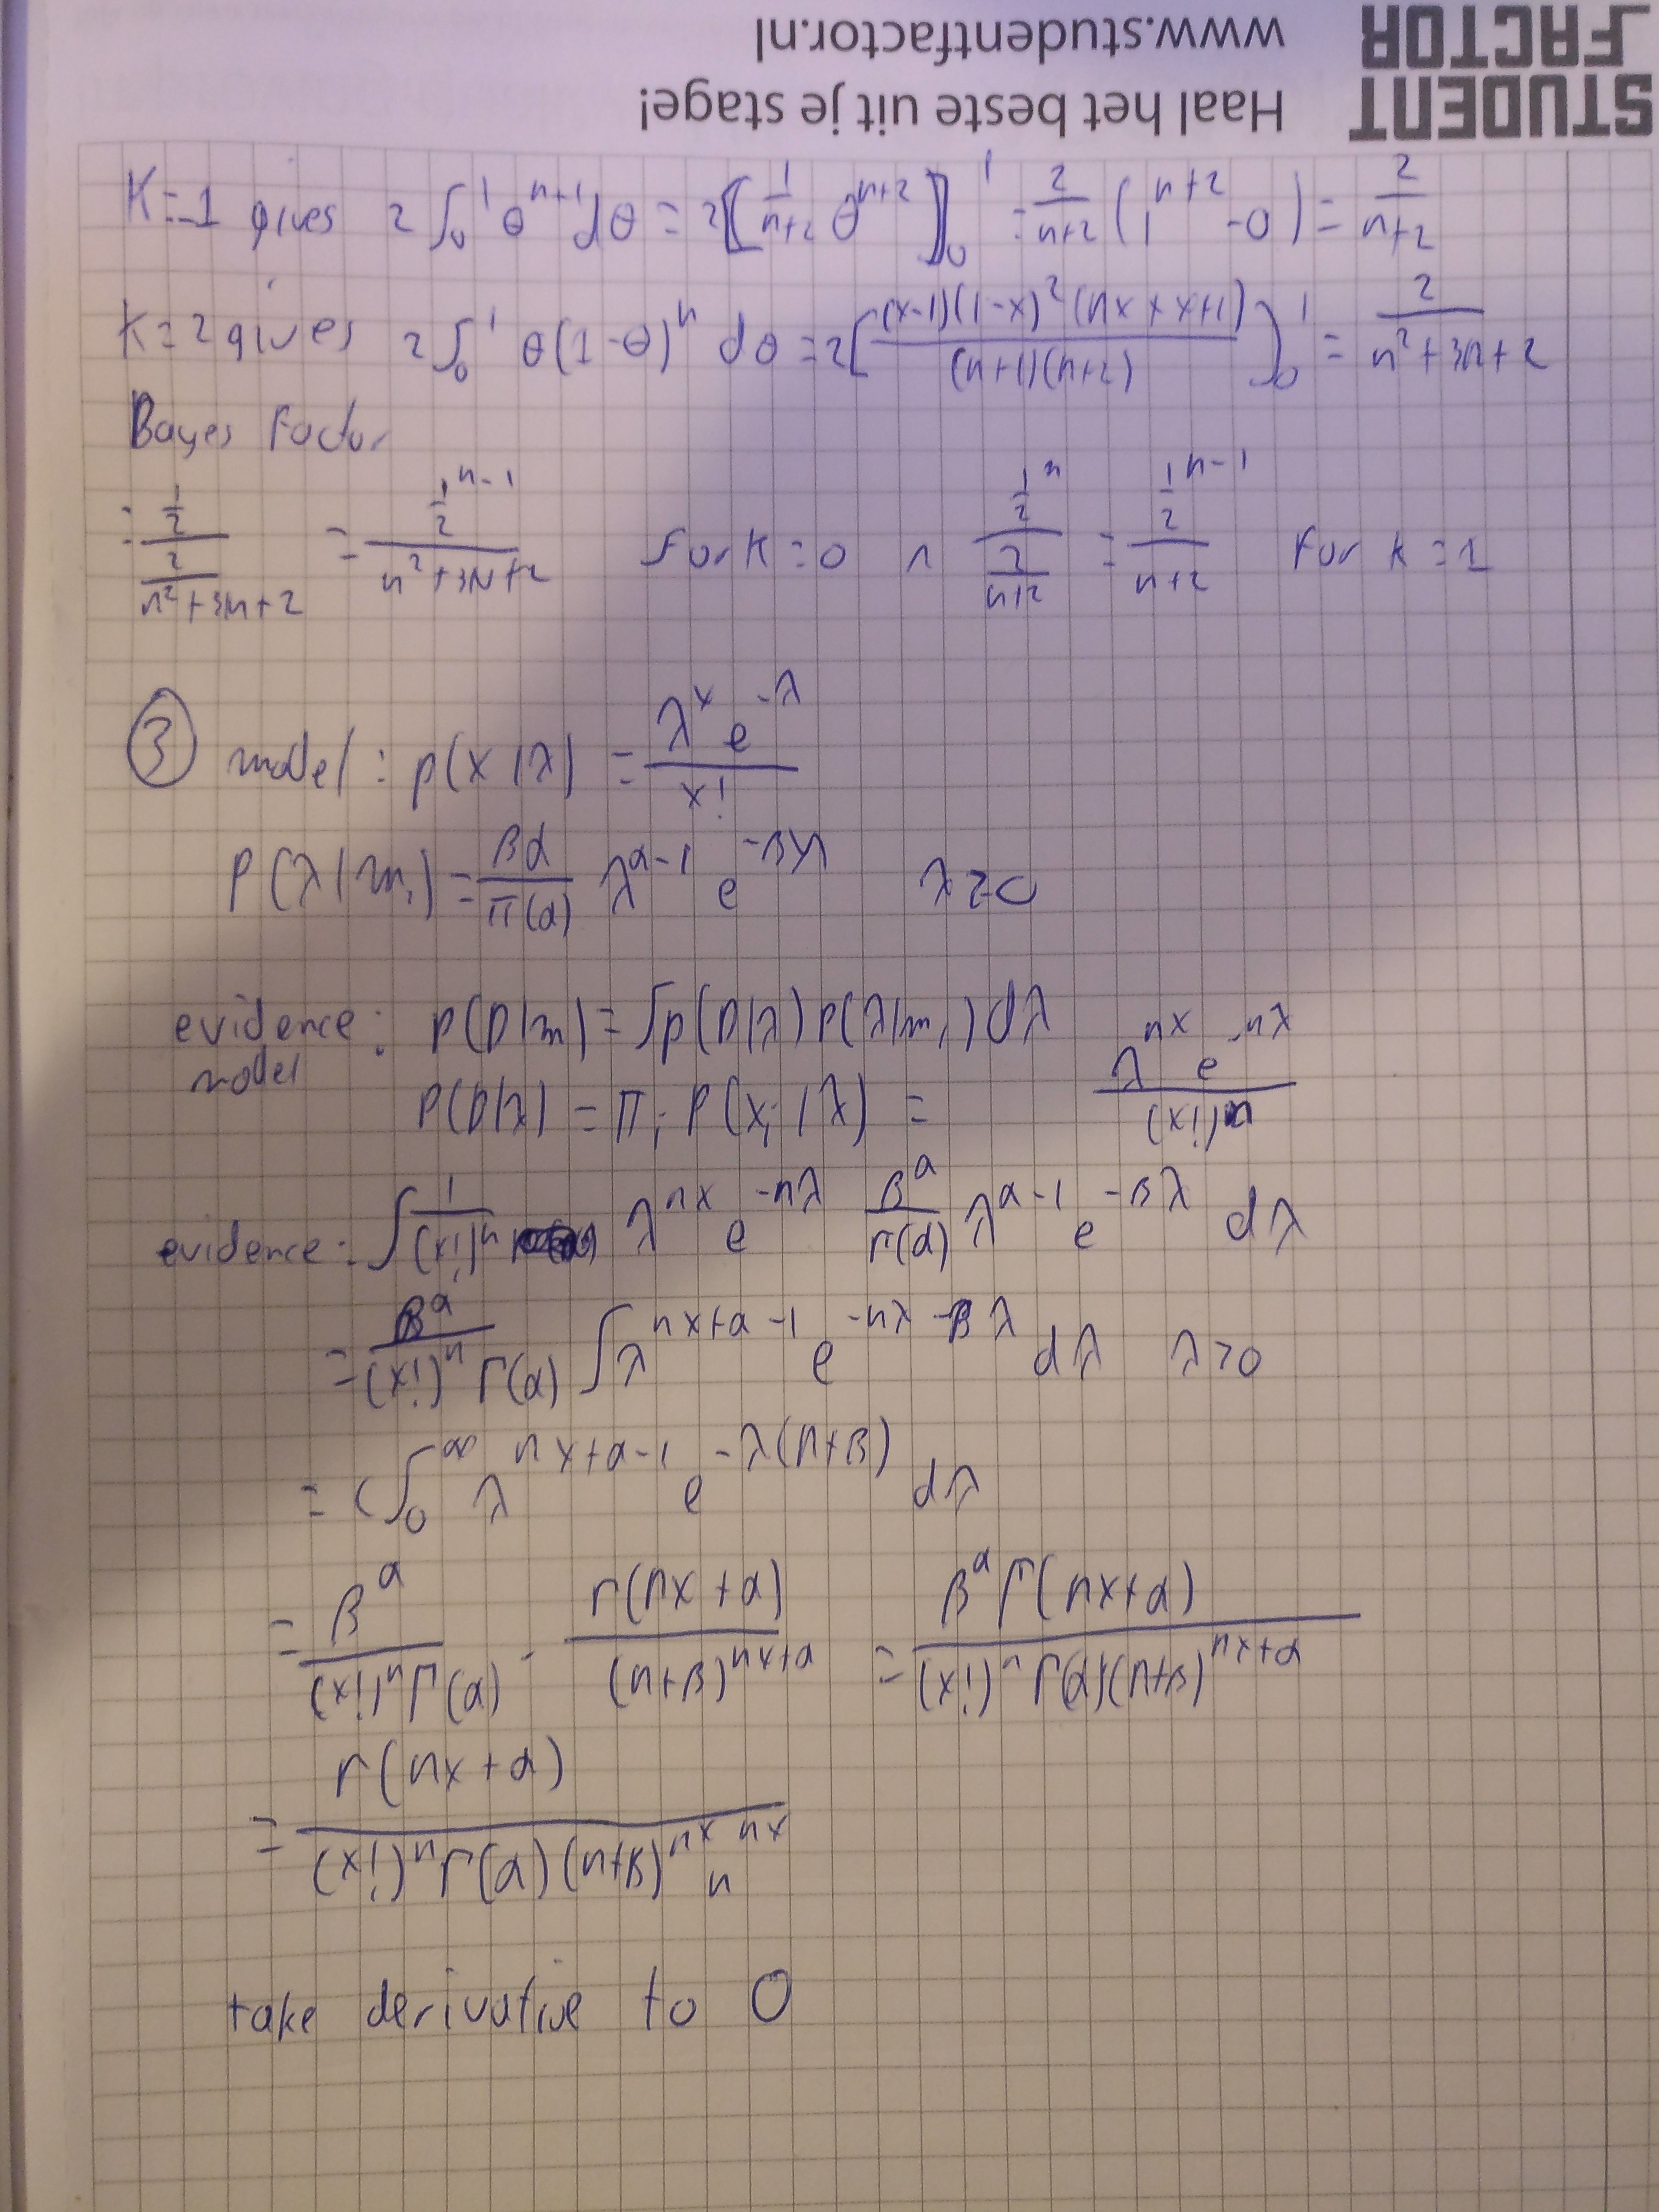 STUDENT FACTOR
Haal het beste uit je stage!
www.studentfactor.nl
K=1 gives 2∫₀¹ θ^(n+1) dθ = 2[1/(n+2) θ^(n+2)]₀¹ = 2/(n+2) (1^(n+2) - 0) = 2/(n+2)
K=2 gives 2∫₀¹ θ(1-θ)^n dθ = 2[(x-1)(1-x)^2(nx+x+1)/((n+1)(n+2))]₀¹ = 2/(n²+3n+2)
Bayes Factor
= (1/2)/(2/(n²+3n+2)) = (1/2^(n-1))/(n²+3n+2) for K=0 ∧ (1/2^n)/(2/(n+2)) = (1/2^(n-1))/(n+2) for K=1
③ model: p(x|λ) = λ^x e^(-λ) / x!
P(λ|m₁) = βα/π(α) λ^(α-1) e^(-βλ) λ≥0
evidence: p(D|m) = ∫p(D|λ) P(λ|m₁) dλ
model P(D|λ) = Πᵢ P(xᵢ|λ) = λ^(nx) e^(-nλ) / (x!)^n
evidence: ∫ 1/(x!)^n λ^(nx) e^(-nλ) β^α/Γ(α) λ^(α-1) e^(-βλ) dλ
= β^α/((x!)^n Γ(α)) ∫ λ^(nx+α-1) e^(-nλ-βλ) dλ λ>0
= C∫₀^∞ λ^(nx+α-1) e^(-λ(n+β)) dλ
= β^α/((x!)^n Γ(α)) · Γ(nx+α)/(n+β)^(nx+α) = β^α Γ(nx+α)/((x!)^n Γ(α)(n+β)^(nx+α))
= Γ(nx+α)/((x!)^n Γ(α)(n+β)^(nx) n^(nx))
take derivative to 0